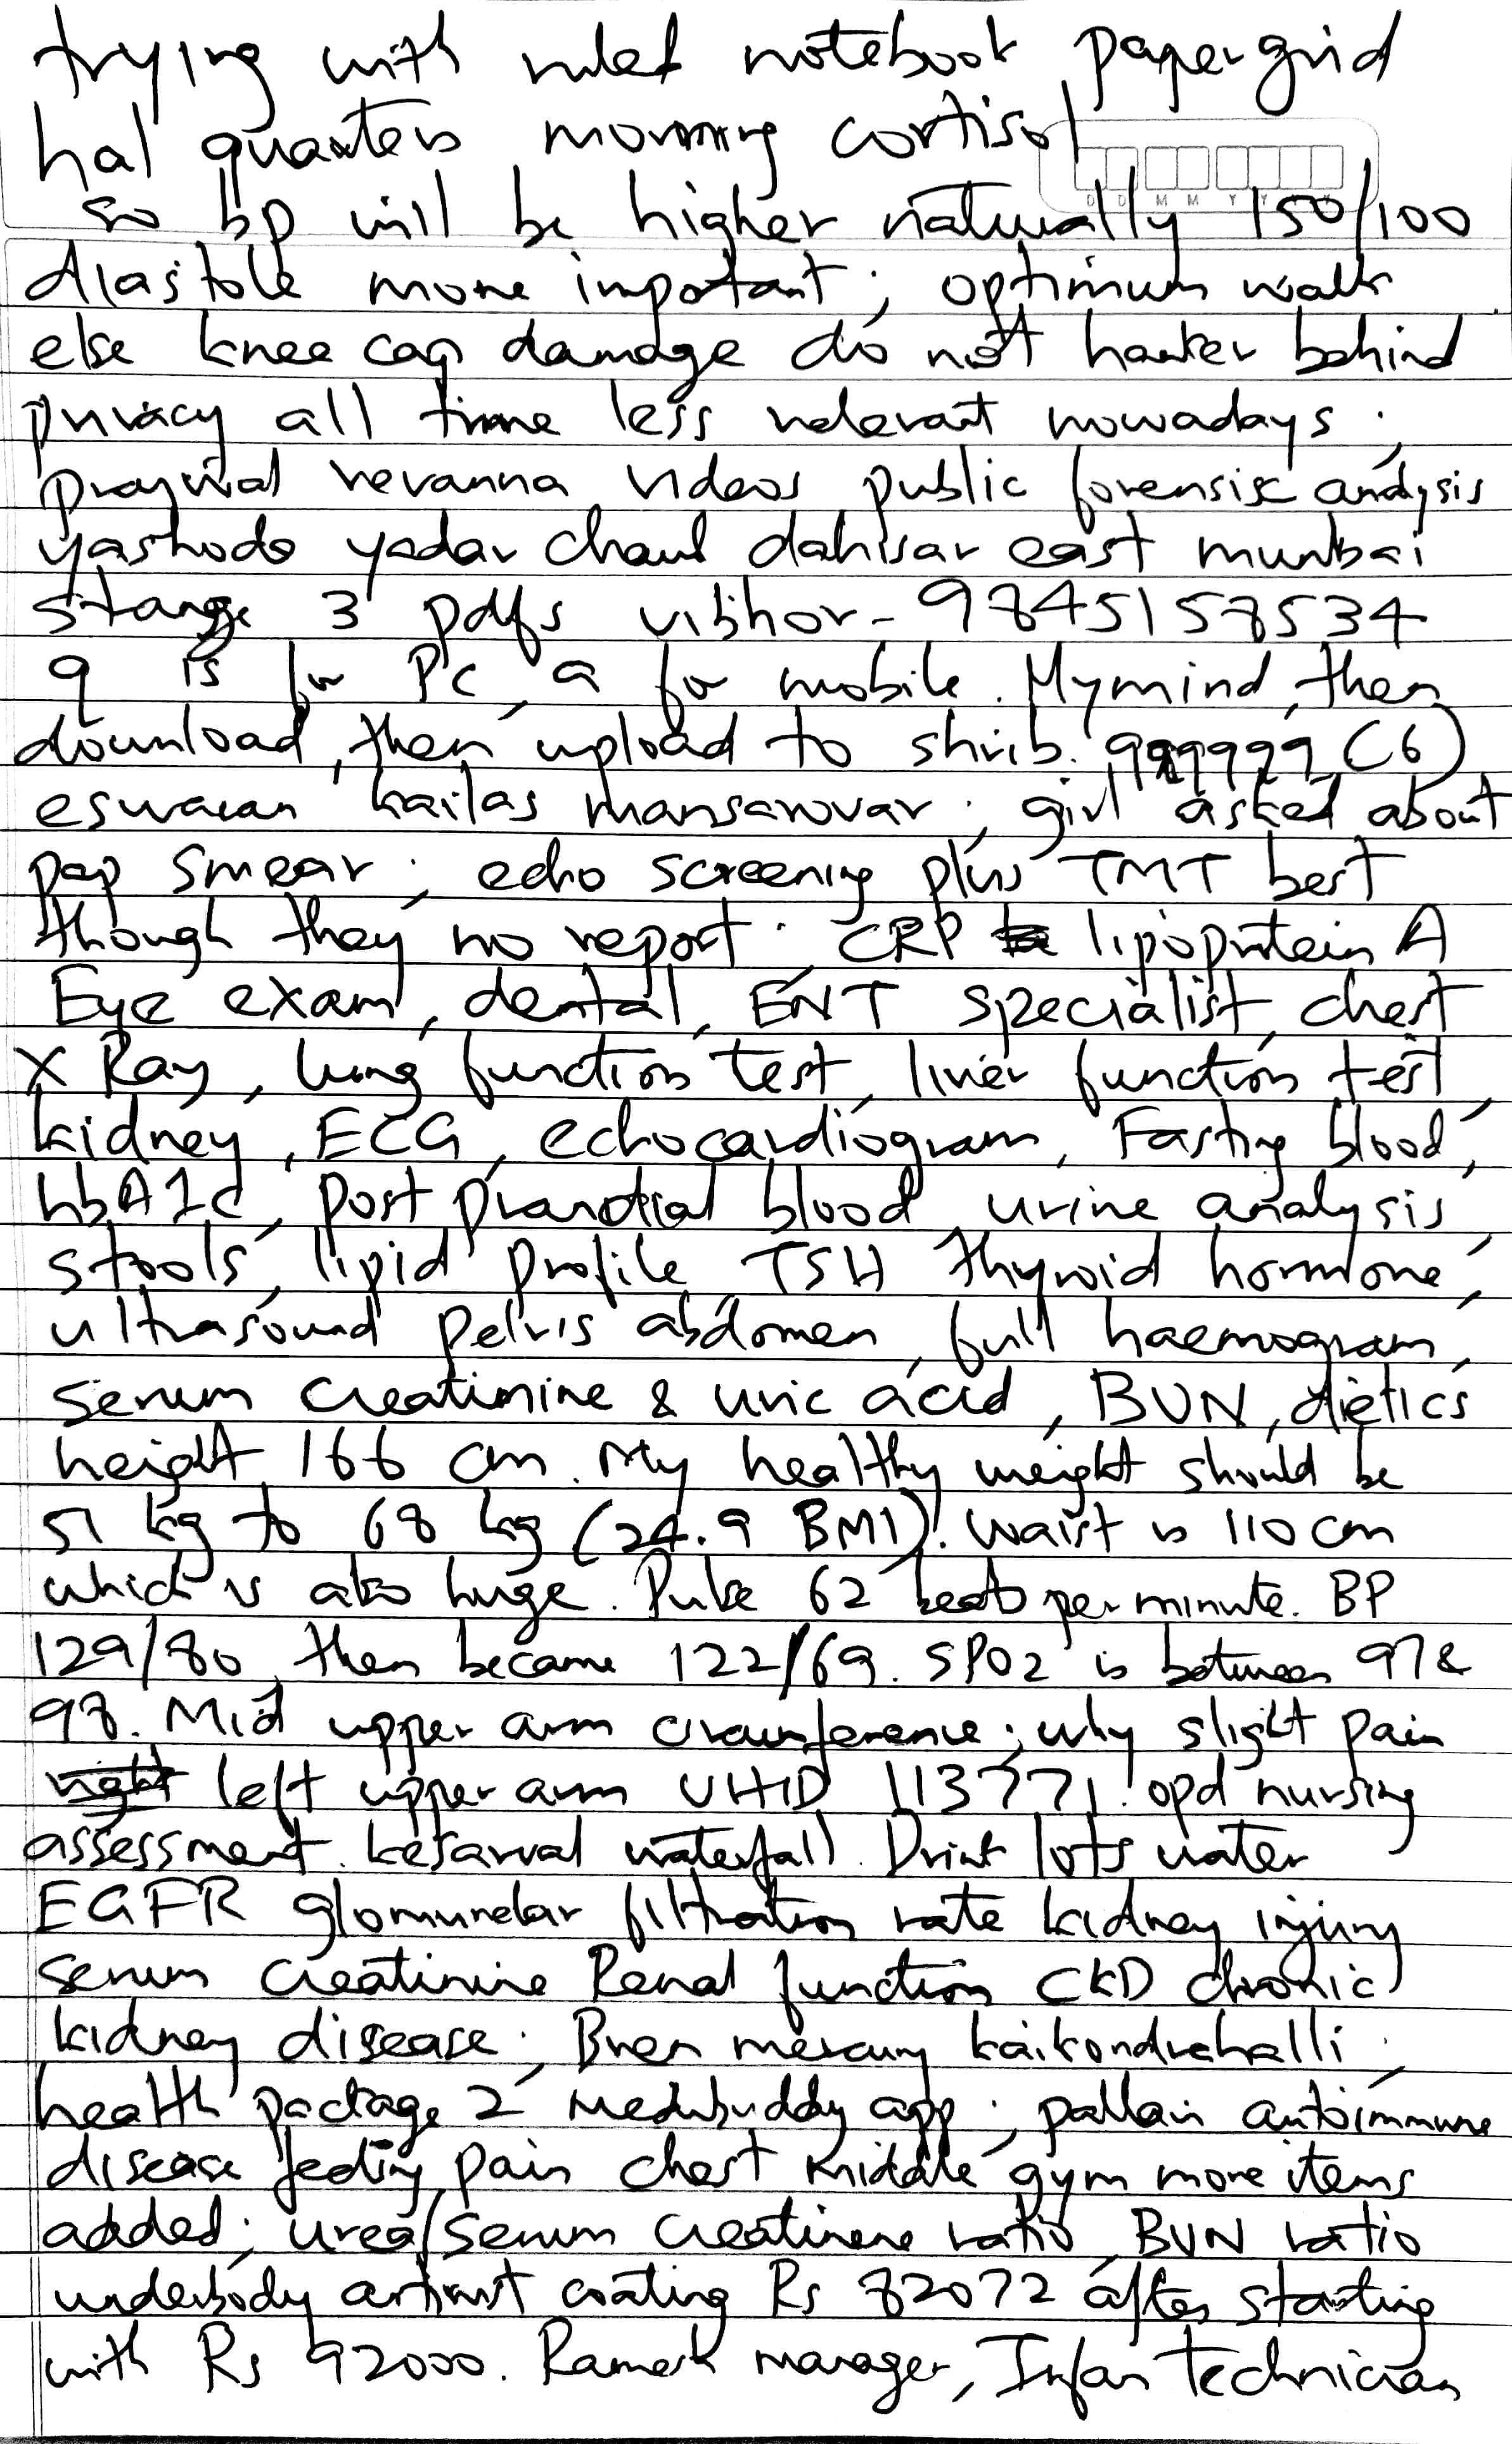 trying with ruled notebook papergrid
hal quarters morning cortisol
D D M M Y Y
so bp will be higher naturally 150/100
diastole more important; optimum walk
else knee cap damage do not hanker behind
privacy all time less relevant nowadays;
prajwal revanna videos public forensic analysis
yashoda yadav chawl dahisar east mumbai
3 pdfs vibhor - 9845158534
q is for PC, a for mobile. Mymind, then
download, then upload to shrib. 999999 (6)
eswaran kailas mansarovar; girl asked about
pap smear; echo screening plus TMT best
though they no report. CRP lipoprotein A
Eye exam, dental, ENT specialist, chest
X Ray, lung function test, liver function test,
kidney, ECG, echocardiogram, Fasting blood,
hbA1c, post prandial blood, urine analysis,
stools, lipid profile, TSH thyroid hormone,
ultrasound pelvis abdomen, full haemogram,
serum creatinine & uric acid, BUN, dietics
height 166 cm. My healthy weight should be
51 kg to 68 kg (24.9 BMI). Waist is 110 cm
which is also huge. Pulse 62 beats per minute. BP
129/80, then became 122/69. SPO2 is between 97 &
98. Mid upper arm circumference; why slight pain
right left upper arm UHID 113771. opd nursing
assessment. kesarval waterfall. Drink lots water
EGFR glomurelar filtration rate kidney injury
serum creatinine Renal function CKD chronic
kidney disease; Bren mercury kaikondrahalli;
health package 2 medibuddy app; pallavi autoimmune
disease feeling pain chest middle gym more items
added; urea/serum creatinene ratio, BUN ratio
underbody antirust coating Rs 82072 after starting
with Rs 92000. Ramesh manager, Irfan technician